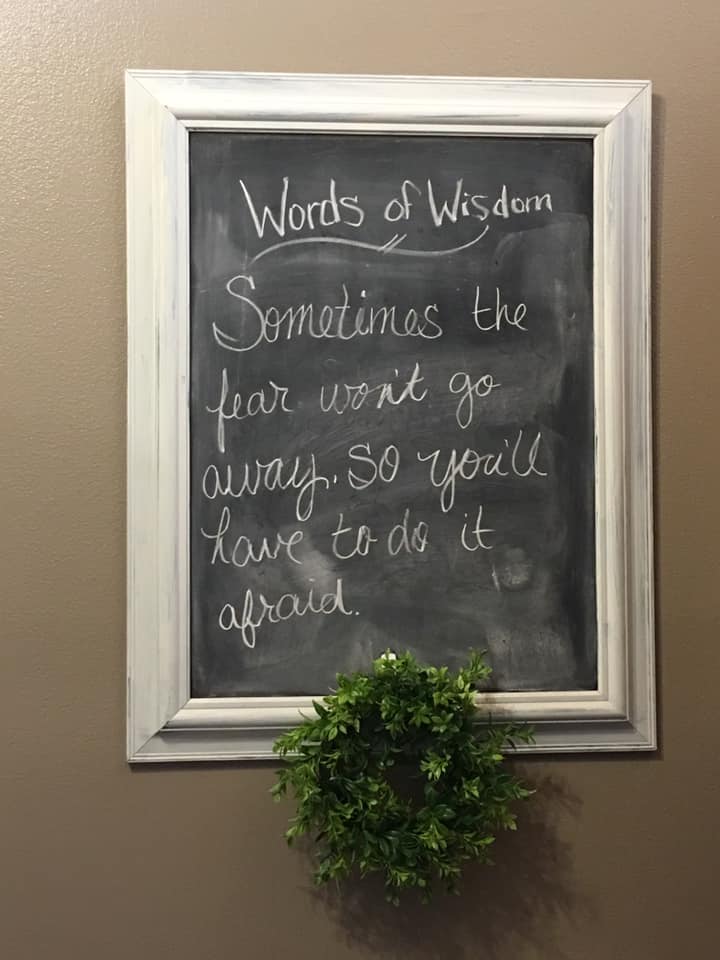 Words of Wisdom
Sometimes the
fear won't go
away. So you'll
have to do it
afraid.